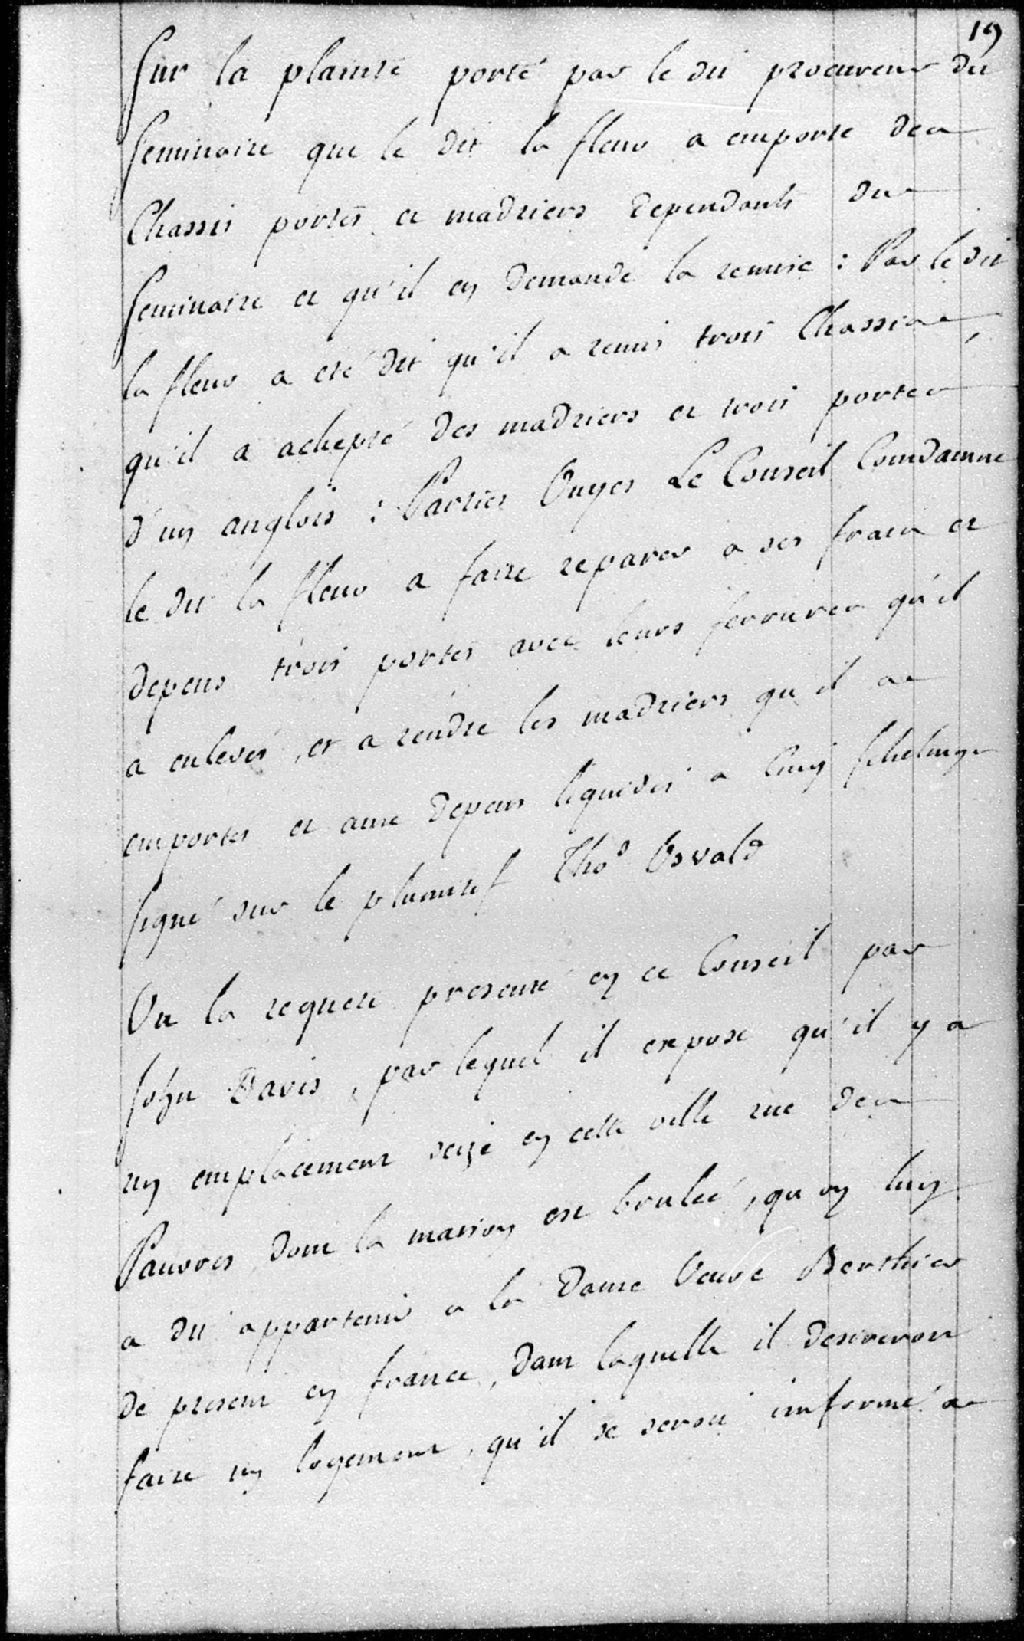 19
Sur la plainte porté par le dit procureur du
Seminaire que le dit la fleur a emporte des
Chassis portes et madriers dependants du
Seminaire et qu'il en demande la remise : Par le dit
la fleur a eté dit qu'il a remis trois Chassis,
qu'il a achepté des madriers et trois portes
d'un anglois : Parties Ouyes Le Conseil Condamne
le dit la fleur a faire reparer a ses frais et
depens trois portes avec leurs ferrures qu'il
a enlevés, et a rendre les madriers qu'il a
emportes et aux depens liquides a Cinq schelings
signé sur le plumitif Thos Osvald
Vu la requete presenté en ce Conseil par
John Davis, par lequel il expose qu'il y a
un emplacement seizé en cette ville rue des
Pauvres dont la maison est brulée, qu'on luy
a dit appartenir a la Dame Veuve Berthier
de present en france, dans laquelle il desireroit
faire un logement, qu'il se seroit informé a